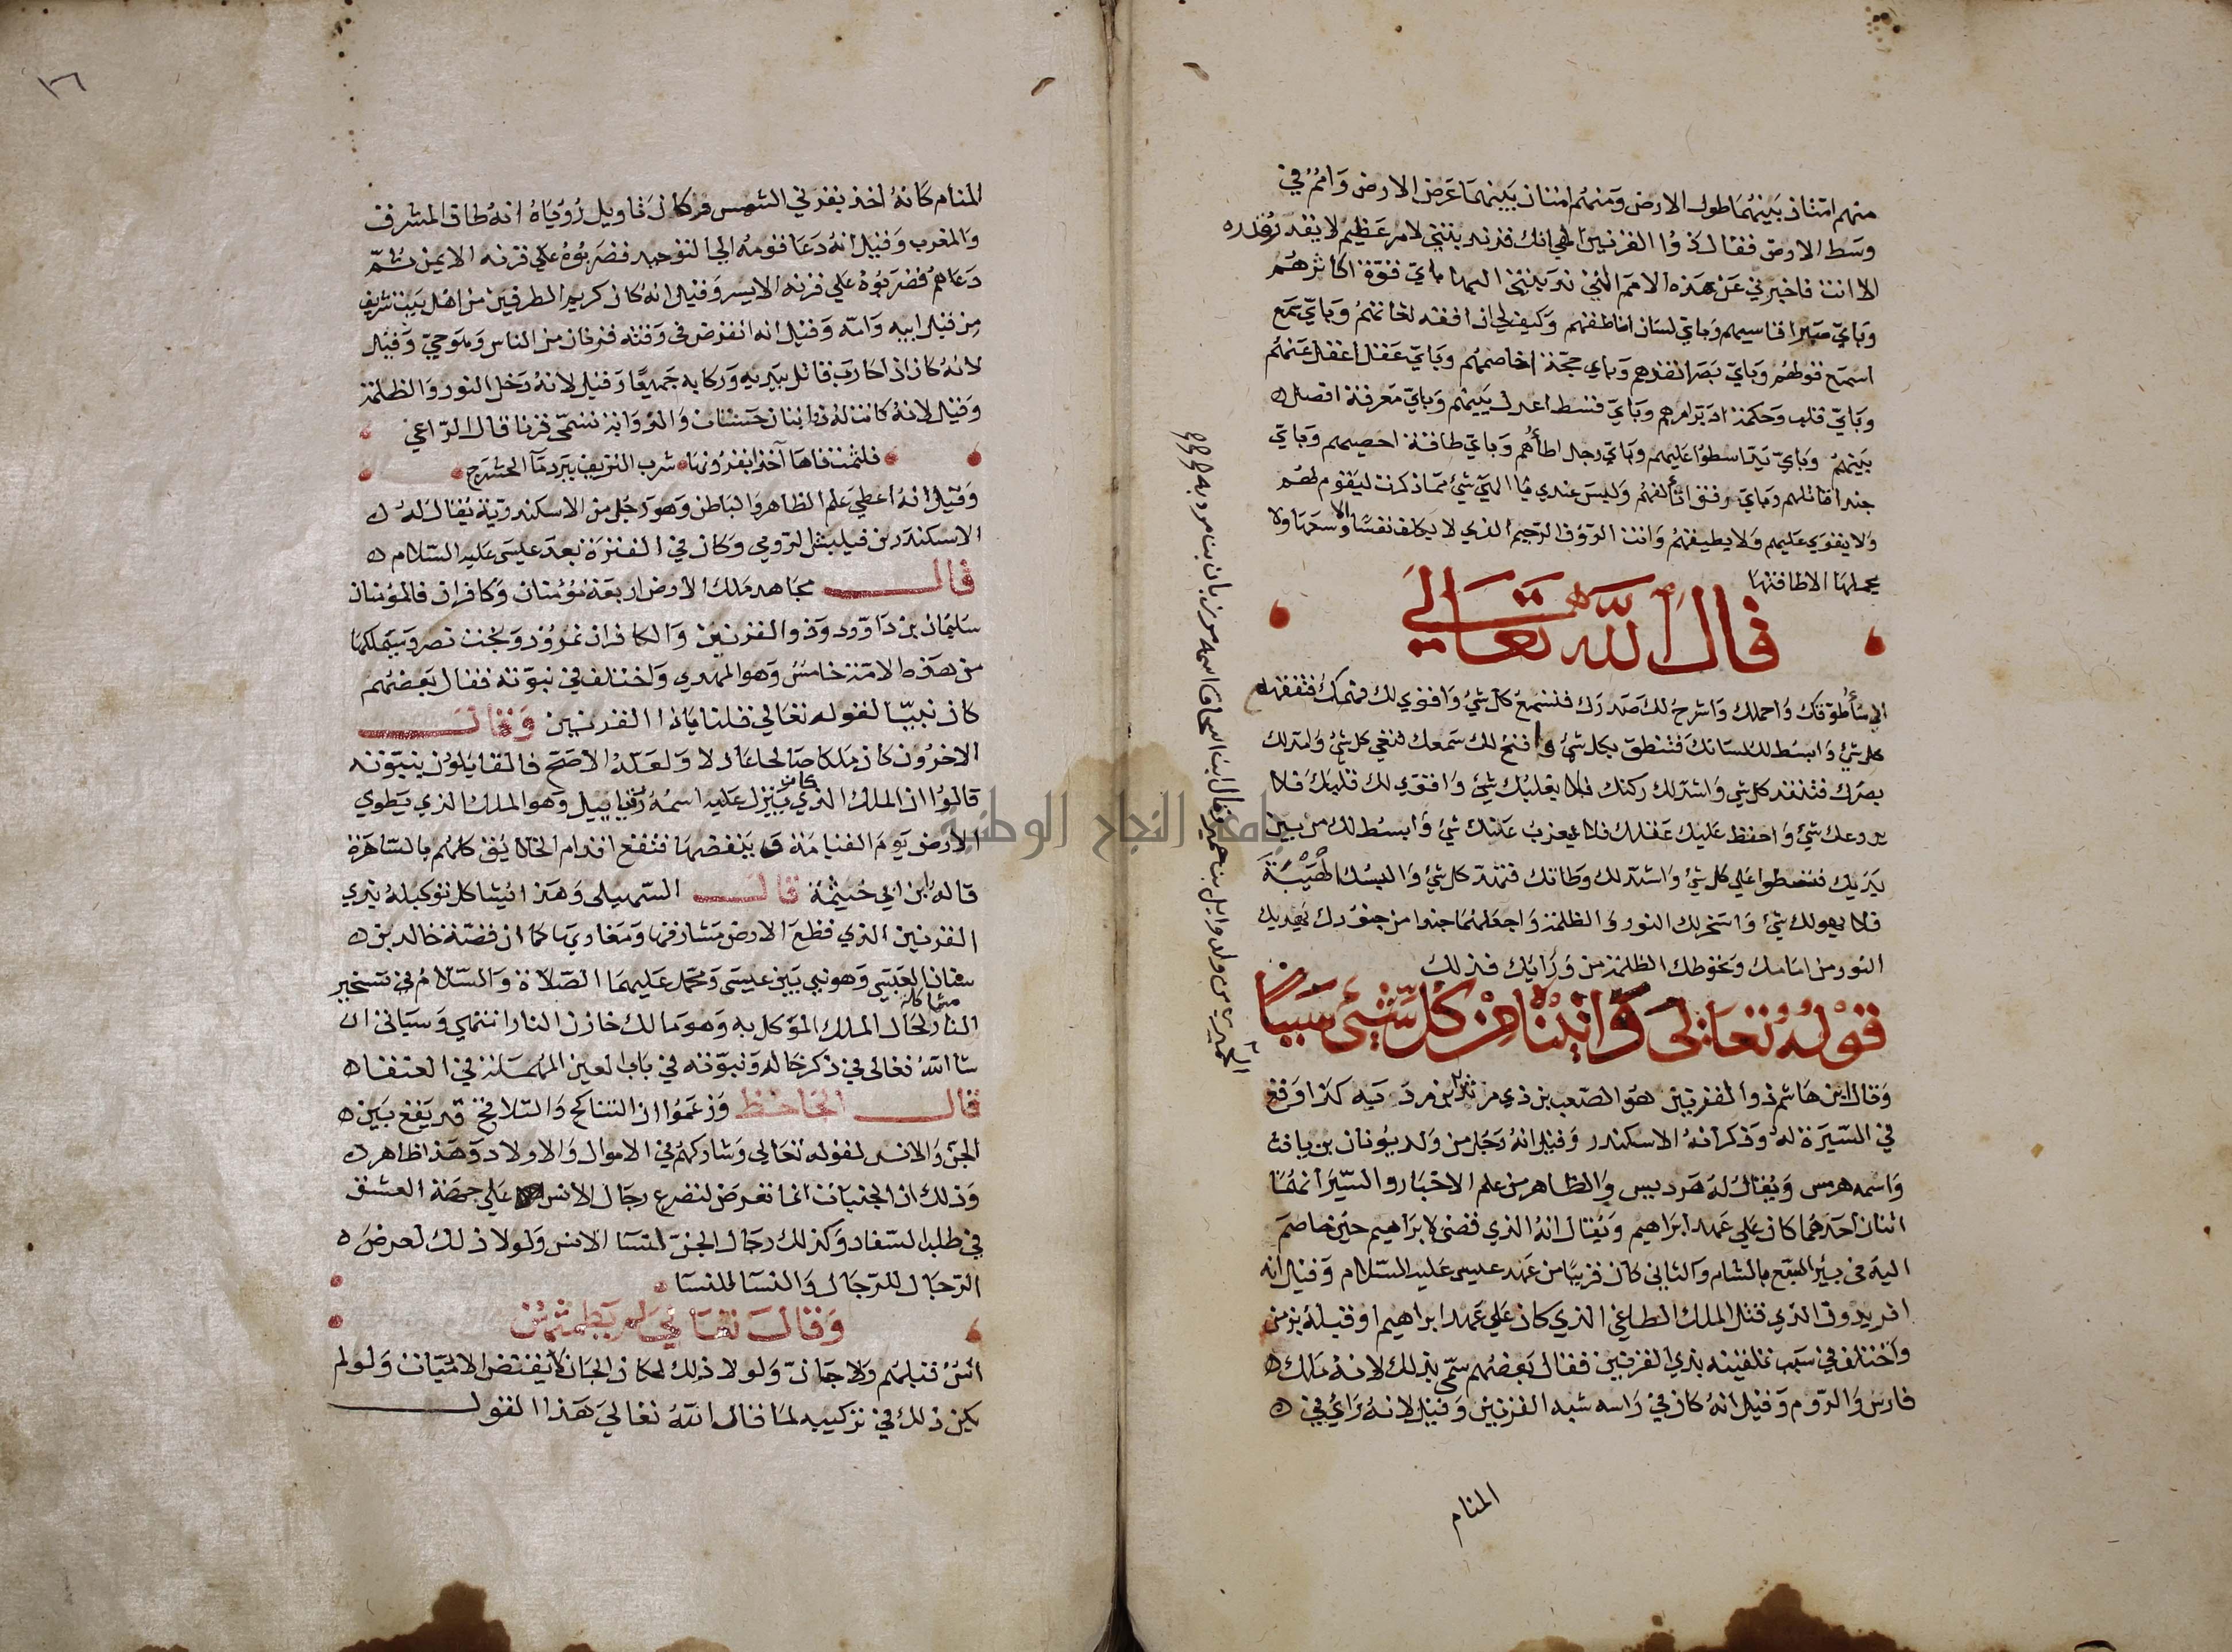 منهم امتان بينهما طول الارض ومنهم امتان بينهما عرض الارض وامم في
وسط الارض فقال ذوا القرنين الهي انك قد ندبتني لامر عظيم لا يقدر قدره
الا انت فاخبرني عن هذه الامم التي ندبتني اليها باي قوة اكاثرهم
وباي صبر اقاسيهم وباي لسان اناطقهم وكيف لي ان افقه لغاتهم وباي سمع
اسمع قولهم وباي بصر انفدهم وباي حجة اخاصمهم وباي عقل اعقل عنهم
وباي قلب وحكمة ادبر امرهم وباي قسط اعدل بينهم وباي معرفة افصل
بينهم وباي يد اسطوا عليهم وباي رجل اطأهم وباي طاقة احصيهم وباي
جند اقاتلهم وباي رفق اتألفهم وليس عندي يا الهي شي مما ذكرت ليقوم لهم
ولا يقوى عليهم ولا يطيقهم وانت الرؤف الرحيم الذي لا يكلف نفسا الا وسعها ولا
يحملها الا طاقتها
قال الله تعالى
اني سأطوقك واحملك واشرح لك صدرك فتسمع كل شي واقوي لك فهمك فتفقه
كل شي وابسط لك لسانك فتنطق بكل شي وافتح لك سمعك فتعي كل شي وامد لك
بصرك فتنفد كل شي واشد لك ركنك فلا يغلبك شي واقوي لك قلبك فلا
يروعك شي واحفظ عليك عقلك فلا يعزب عليك شي وابسط لك من بين
يديك فتسطوا على كل شي واشد لك وطاتك فتهد كل شي والبسك الهيبة
فلا يهولك شي واسخر لك النور والظلمة واجعلهما جندا من جنودك يهديك
النور من امامك وتحوطك الظلمة من ورائك فذلك
قوله تعالى واتيناه من كل شيء سببا
وقال ابن هاشم ذوا القرنين هو الصعب بن ذي مرثد بن مردبه كذا وقع
في السيرة له وذكر انه الاسكندر وقيل انه رجل من ولد يونان بن يافث
واسمه هرمس ويقال له هرديس والظاهر من علم الاخبار والسير انهما
اثنان احدهما كان على عهد ابراهيم ويقال انه الذي قضى لابراهيم حين خاصم
اليه في بير السبع بالشام والثاني كان قريبا من عهد عيسى عليه السلام وقيل انه
افريدون الذي قتل الملك الطاغي الذي كان على عهد ابراهيم او قبله بزمن
واختلف في سبب تلقيبه بذي القرنين فقال بعضهم سمي بذلك لانه ملك
فارس والروم وقيل انه كان في راسه شبه القرنين وقيل لانه رأي في
المنام
وقال ابن اسحاق اسمه مرزبان بن مردبه
١٦
المنام كانه اخذ بقرني الشمس فكان تاويل رؤياه انه طاف المشرق
والمغرب وقيل انه دعا قومه الى التوحيد فضربوه على قرنه الايمن ثم
دعاهم فضربوه على قرنه الايسر وقيل انه كان كريم الطرفين من اهل بيت شريف
من قبل ابيه وامه وقيل انه انقرض في وقته قرنان من الناس وهو حي وقيل
لانه كان اذا حارب قاتل بيديه وركابه جميعا وقيل لانه دخل النور والظلمة
وقيل لانه كانت له ذوابتان حسنتان والذوابة تسمى قرنا قال الراعي
فلثمت فاها آخذا بقرونها شرب النزيف ببرد مآ الحشرج
وقيل انه اعطي علم الظاهر والباطن وهو رجل من الاسكندرية يقال له
الاسكندر بن فيلبش الرومي وكان في الفترة بعد عيسى عليه السلام
قال مجاهد ملك الارض اربعة مؤمنان وكافران فالمؤمنان
سليمان بن داوود وذو القرنين والكافران نمروذ وبخت نصر وسيملكها
من هذه الامة خامس وهو المهدي واختلف في نبوته فقال بعضهم
كان نبيا لقوله تعالى قلنا يا ذا القرنين وقال
الاخرون كان ملكا صالحا عادلا ولعله الاصح فالقايلون بنبوته
قالوا ان الملك الذي كان ينزل عليه اسمه رقيابيل وهو الملك الذي يطوي
الارض يوم القيامة وينقضها فتقع اقدام الخلايق كلهم بالساهرة
قاله ابن ابي خيثمة قال السهيلي وهذا يشاكل توكيله بذي
القرنين الذي قطع الارض مشارقها ومغاربها كما ان قصة خالد بن
سنان العبسي وهو نبي بين عيسى ومحمد عليهما الصلاة والسلام في تسخير
النار مشاكلة لحال الملك الموكل به وهو مالك خازن النار انتهى وسياتي ان
شا الله تعالى في ذكر خالد ونبوته في باب العين المهملة في العنقا
قال الجاحظ وزعموا ان التناكح والتلاقح قد يقع بين
الجن والانس لقوله تعالى وشاركهم في الاموال والاولاد وهذا ظاهر
وذلك ان الجنيات انما تعرض لتصرع رجال الانس على جهة العشق
في طلب السفاد وكذلك رجال الجن لنسا الانس ولولا ذلك لعرض
الرجال للرجال والنسا للنسا
وقال تعالى لم يطمثهن
انس قبلهم ولا جان ولولا ذلك لكان الجان لا يفتض الادميات ولو لم
يكن ذلك في تركيبه لما قال الله تعالى هذا القول
جامعة النجاح الوطنية